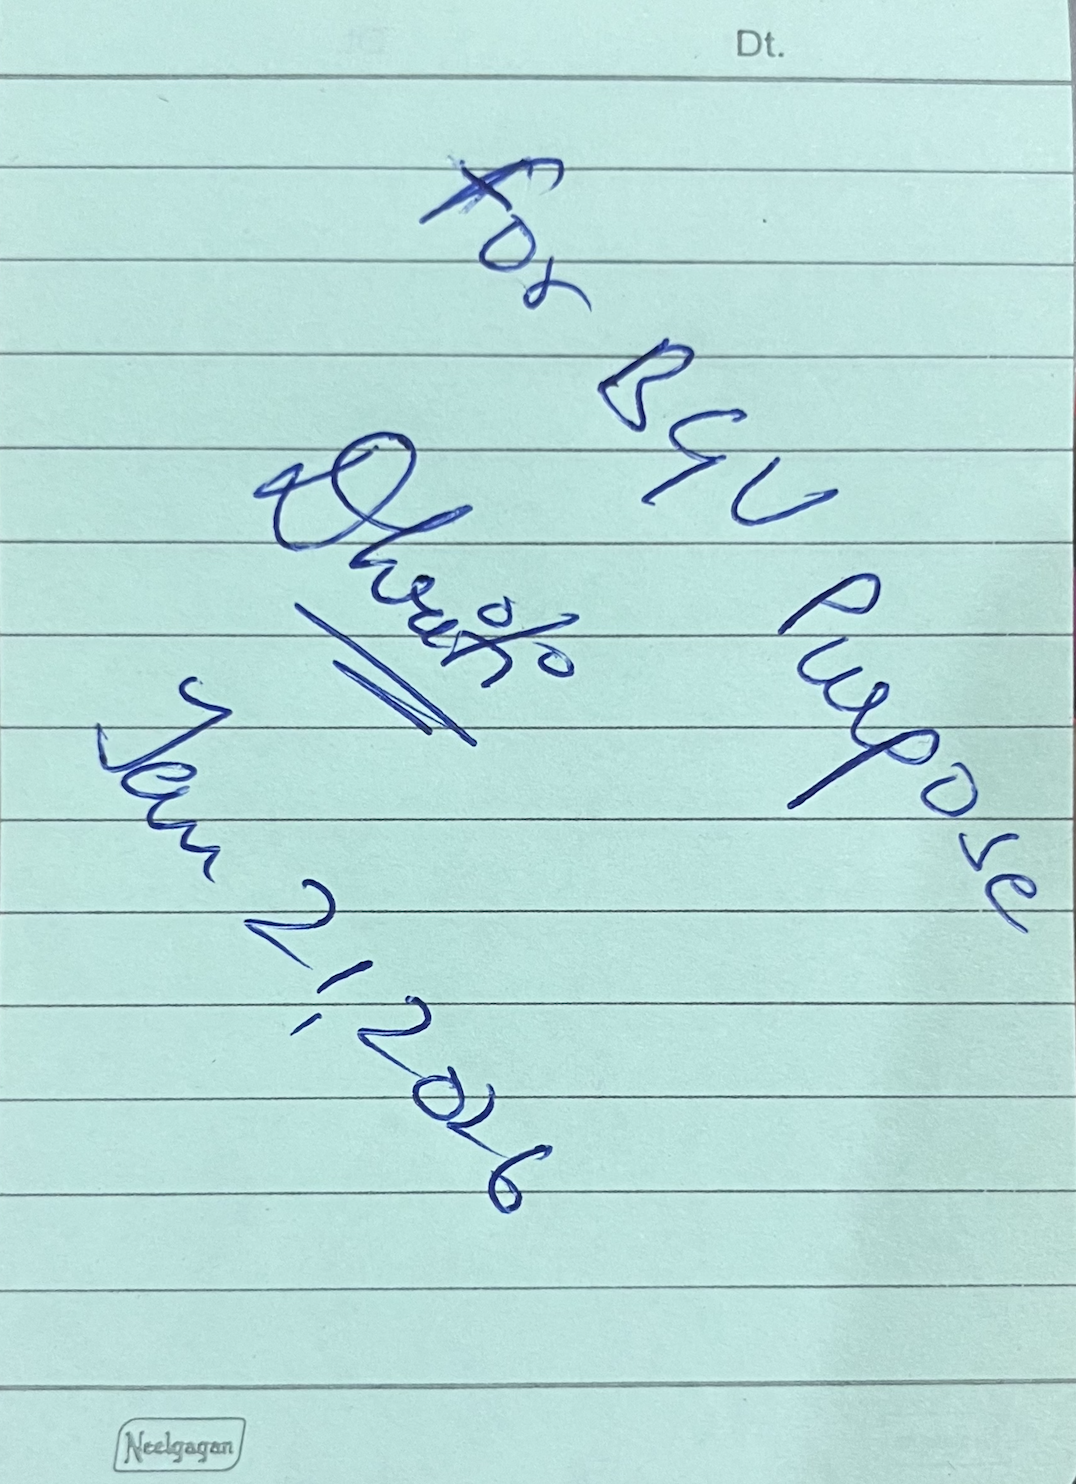 Dt.
For BGV Purpose
Jan 21, 2026
Neelgagan